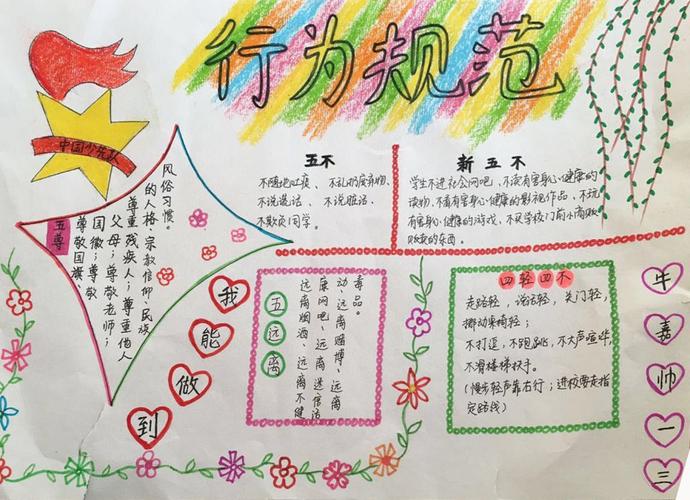 行为规范
中国少先队
五尊
尊敬国旗
国徽；尊敬
父母；尊敬老师；
尊重残疾人；尊重他人
的人格、宗教信仰、民族
风俗习惯。
五不
不随地吐痰、不乱扔废弃物、
不说谎话、不说脏话、
不欺负同学。
新五不
学生不进社会网吧，不读有害身心健康的
读物，不看有害身心健康的影视作品，不玩
有害身心健康的游戏，不买学校门前小商贩
贩卖的东西。
我能做到
五远离
远离烟酒、远离不健
康网吧、远离迷信活
动、远离赌博、远离
毒品。
四轻四不
走路轻，说话轻，关门轻，
挪动桌椅轻；
不打逗，不跑跳，不大声喧哗，
不滑楼梯扶手。
（慢步轻声靠右行；进校要走指
定路线）
牛嘉帅一三